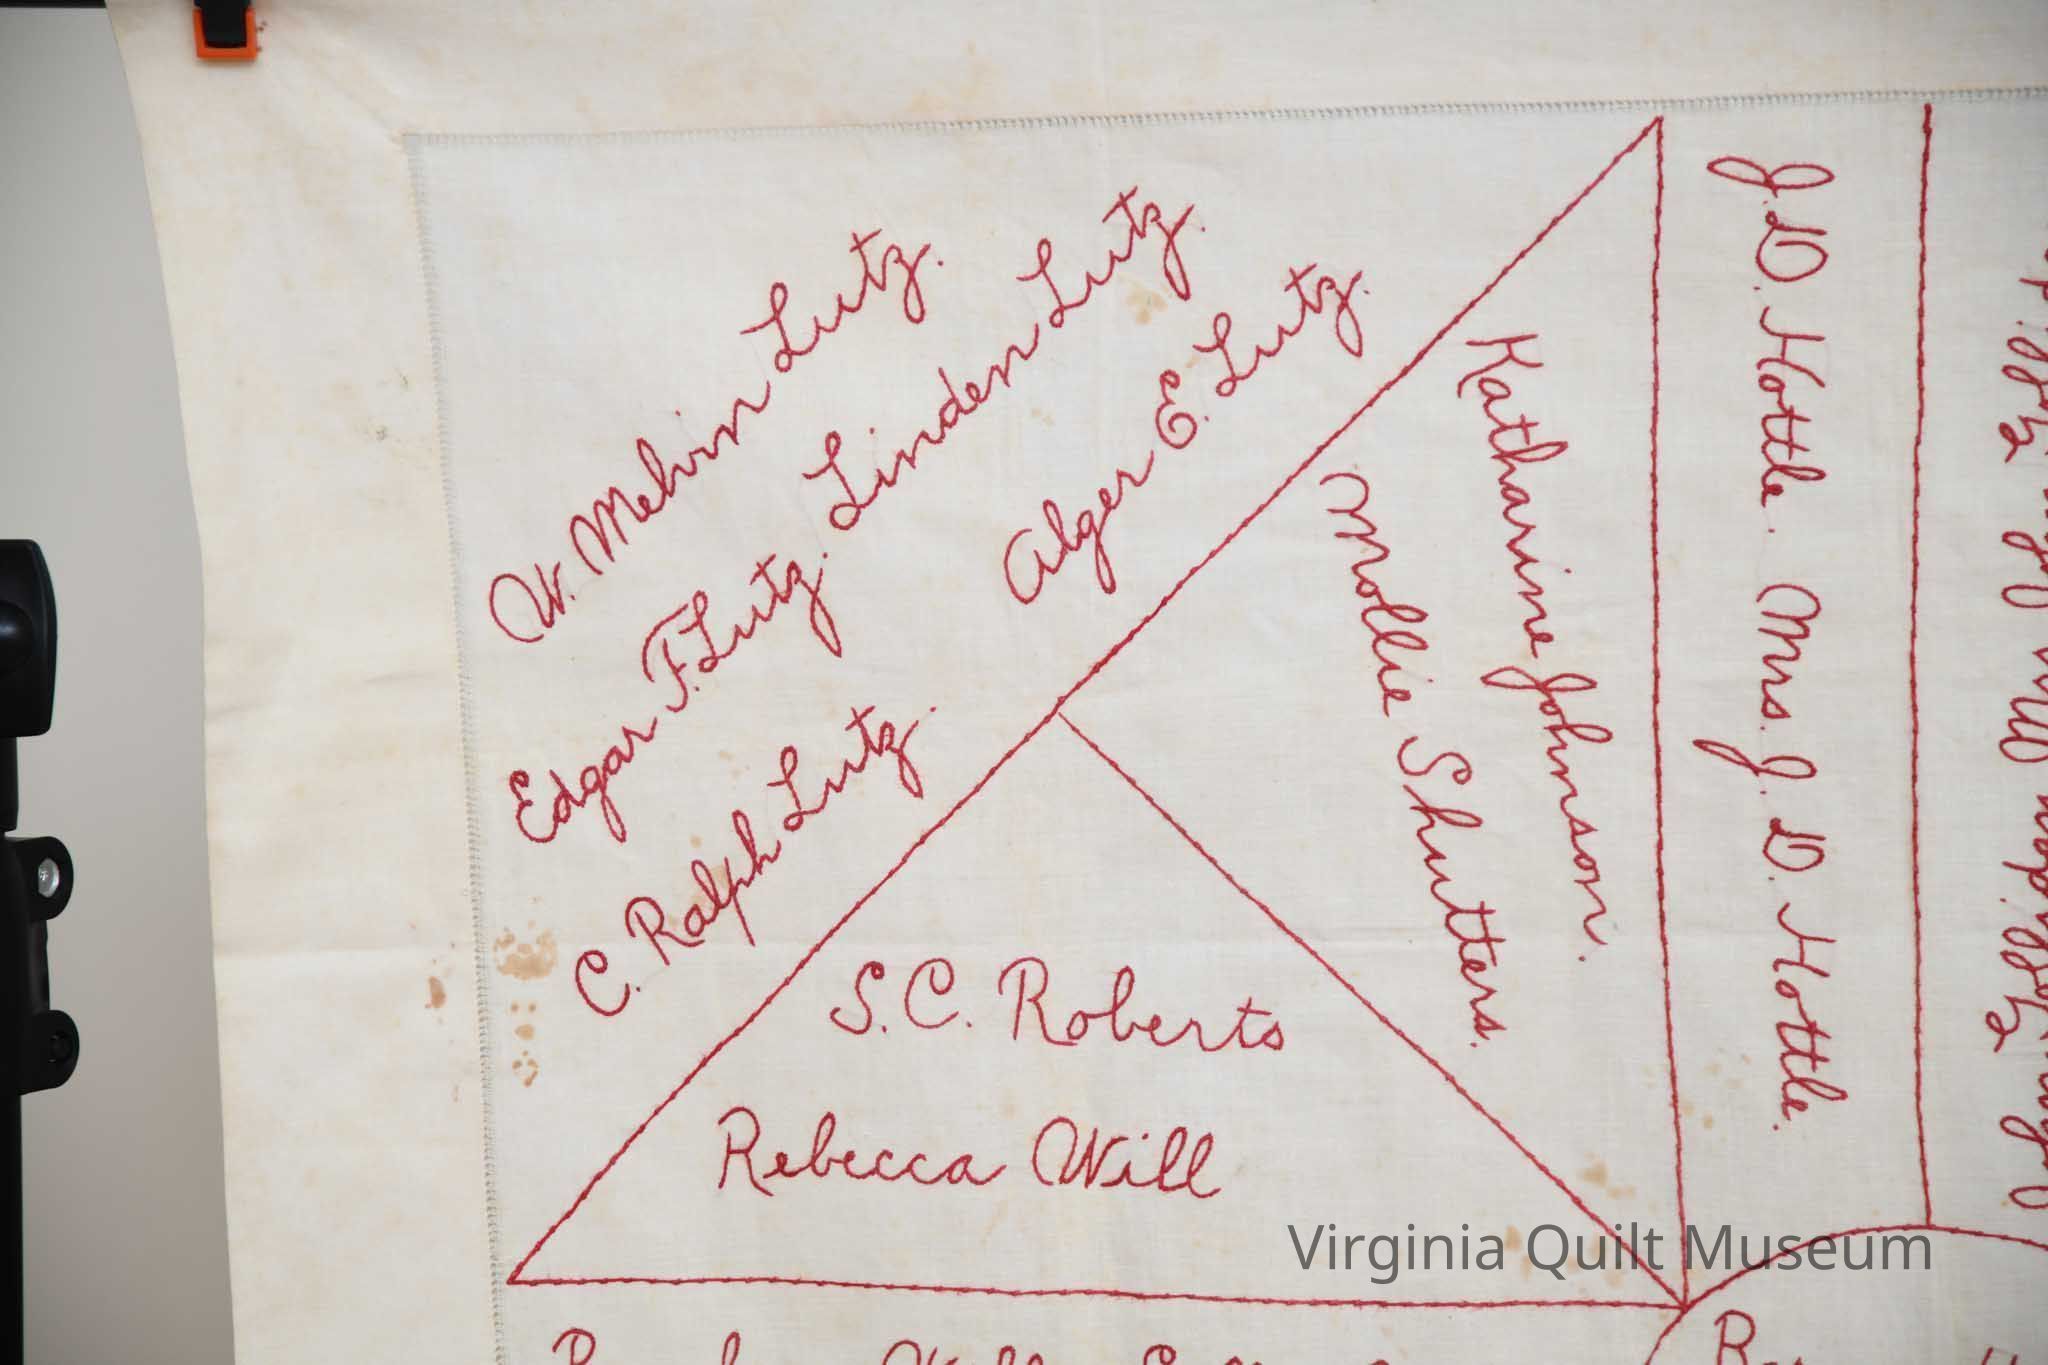 W. Melvin Lutz.
Edgar F. Lutz. Linden Lutz.
C. Ralph Lutz. Alger E. Lutz.
Katharine Johnson.
Mollie Shutters.
S.C. Roberts
Rebecca Will
J.D. Hottle. Mrs. J. D. Hottle.
Virginia Quilt Museum